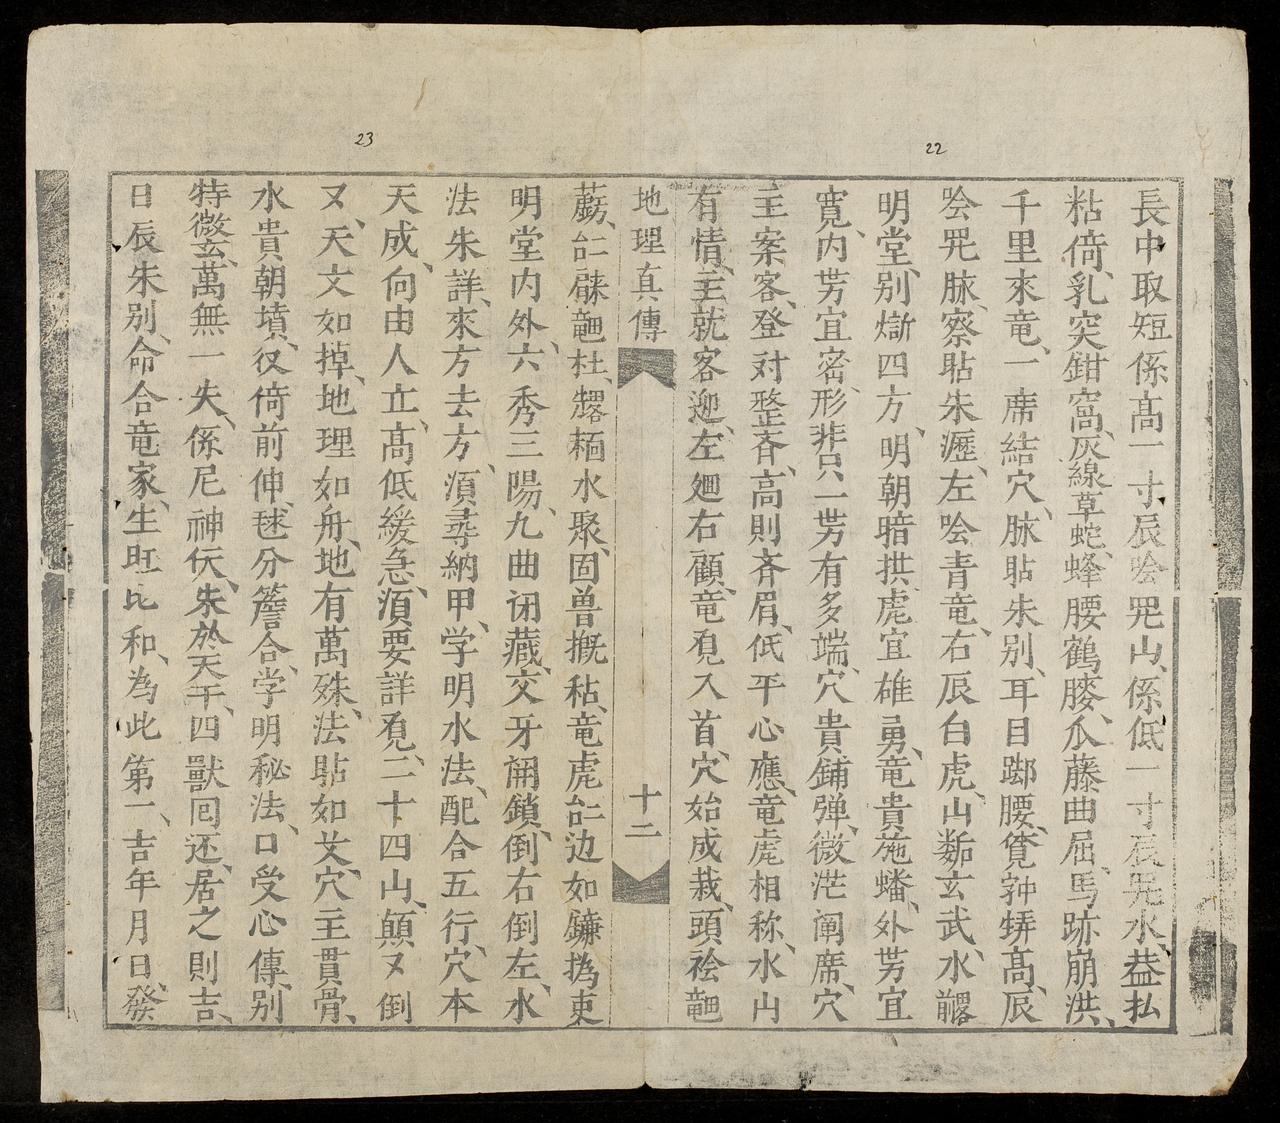 長中取短係髙一寸辰唫咒山、係低一寸辰咒水、益払
粘倚、乳突鉗窩、灰線草蛇、蜂腰鶴膝、瓜藤曲屈、馬跡崩洪、
千里來竜、一席結穴、脉貼朱别、耳目踋腰、寬𨆢𤙭髙、辰
唫咒脉、察貼朱瀝、左唫青竜、右辰白虎、山𪀄玄武、水𩩫
明堂、别𤏬四方、明朝暗拱、虎宜雄勇、竜貴施蟠、外芳宜
寛、内芳宜密、形非只一、芳有多端、穴貴鋪弹、微茫阐席、穴
主案客、登对整斉、高則斉眉、低平心應、竜虎相称、水山
有情、主就客迎、左廻右顧、竜覓入首、穴始成栽、頭𥘶𪓐
地理真傳 十二
𧃷、𠄩𠃅𪓐杜、𤛠𥽌水聚、固兽摡秙、竜虎𠄩边如鐮撝東
明堂内外、六秀三陽、九曲闭藏、交牙閞鎖、倒右倒左、水
法朱詳、來方去方、湏尋納甲、学明水法、配合五行、穴本
天成、向由人立、髙低緩急、湏要詳覓、二十四山、顛又倒
又、天文如掉、地理如舟、地有萬殊、法貼如艾、穴主貫骨、
水貴朝墳、仅倚前伸、毬分簷合、学明秘法、口受心傳、别
特微玄、萬無一失、係尼神伏、朱於天干、四獸囘还、居之則吉、
日辰朱别、命合竜家、生旺比和、為此第一、吉年月日、發
23
22